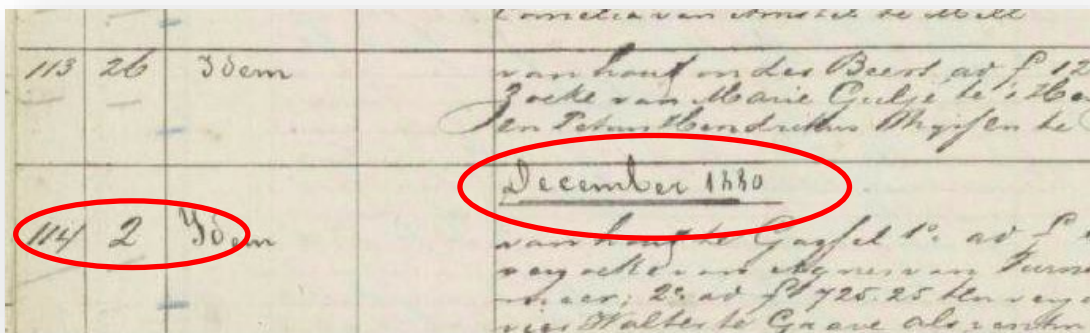 Cornelia van Amstel te Mill
113 26 Idem van hout onder Beers ad f 12
zoeke van Marie te
en Petrus Hendrikus Thijssen te
December 1880
114 2 Idem van hout te Gassel 1o. ad f
verzoeke van Agnes van
meer; 2o. ad f 1725.25 ten ver
Walter te Grave als